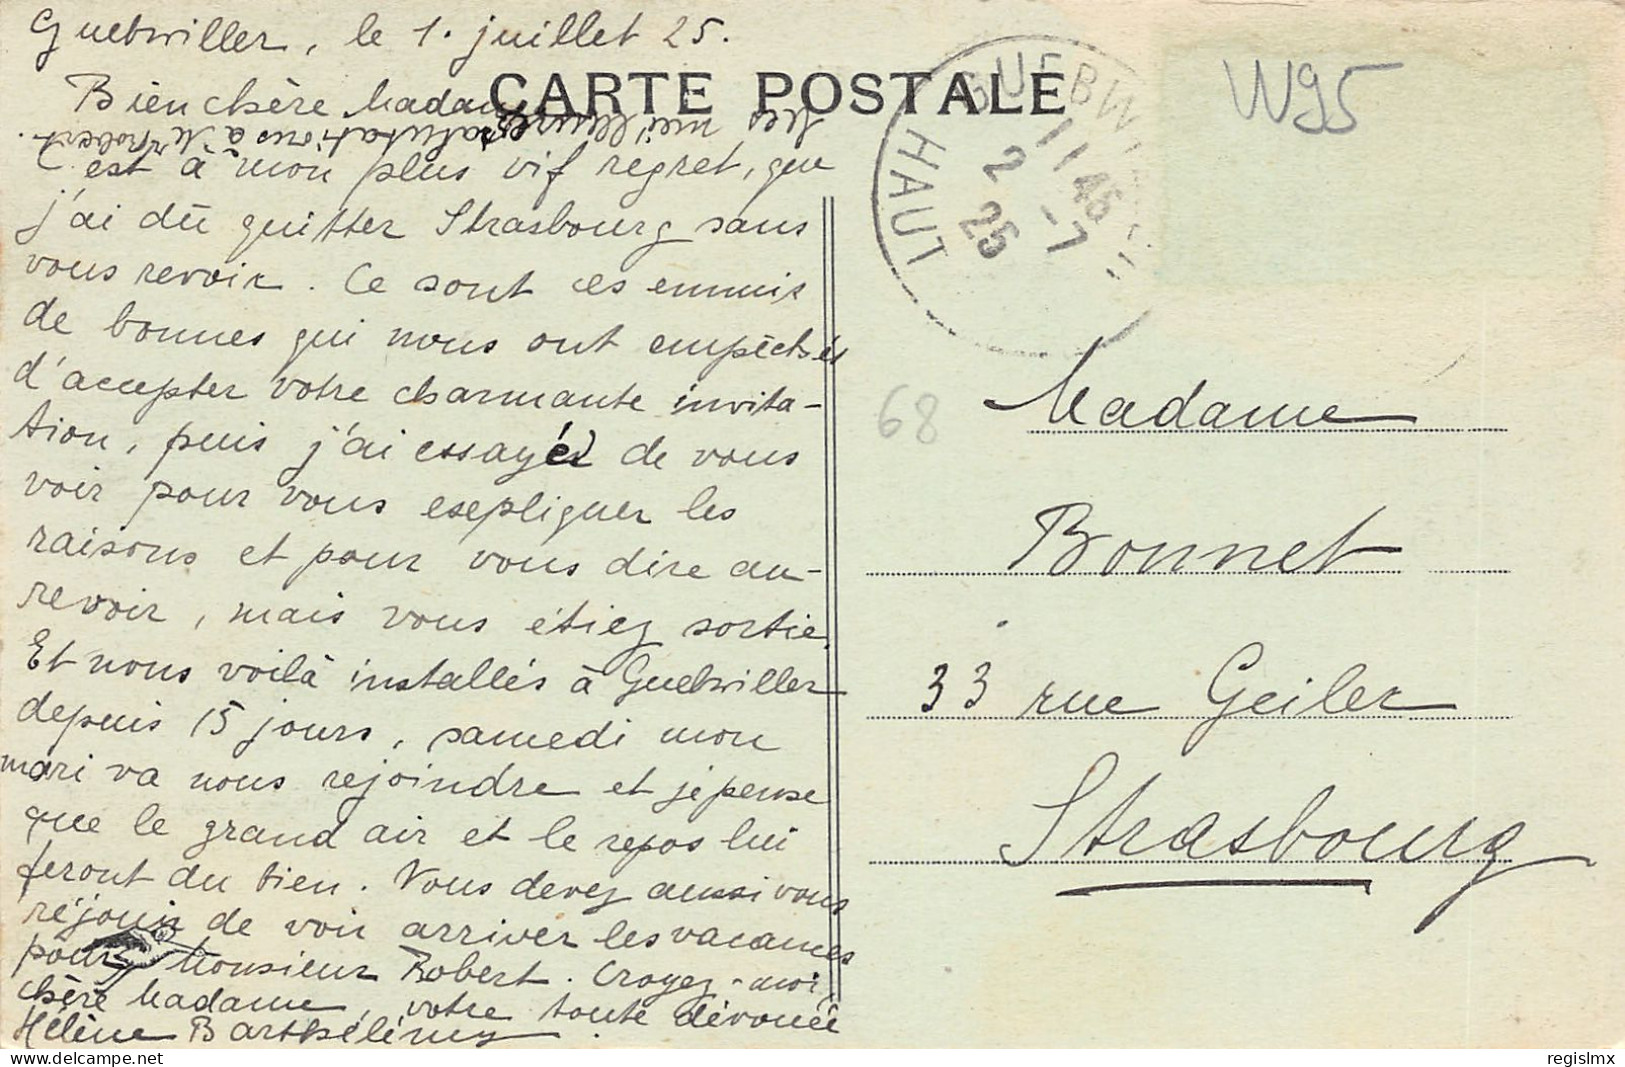 Guebwiller, le 1. juillet 25.
CARTE POSTALE
Bien chère Madame
Mes meilleures salutations à Mr Robert.
C'est à mon plus vif regret, que
j'ai dû quitter Strasbourg sans
vous revoir. Ce sont ces ennuis
de bonnes qui nous ont empêchés
d'accepter votre charmante invita-
tion, puis j'ai essayé de vous
voir pour vous expliquer les
raisons et pour vous dire au-
revoir, mais vous étiez sortie.
Et nous voilà installés à Guebwiller
depuis 15 jours, samedi mon
mari va nous rejoindre et je pense
que le grand air et le repos lui
feront du bien. Vous devez aussi vous
réjouir de voir arriver les vacances
pour Monsieur Robert. Croyez-moi,
chère Madame, votre toute dévouée
Hélène Barthélémy.
GUEBW
HAUT
11 45
2 -7
25
W95
68
Madame
Bonnet
33 rue Geiler
Strasbourg
regislmx